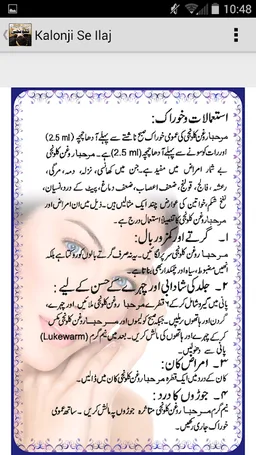 10:48
Kalonji Se Ilaj
استعمالات وخوراک:
مرحبا روغن کلونجی کی عمومی خوراک صبح ناشتے سے پہلے آدھا چمچہ (2.5 ml)
اور رات کو سونے سے پہلے آدھا چمچہ (2.5 ml) ہے۔ مرحبا روغن کلونجی
بے شمار امراض میں مفید ہے۔ جن میں کھانسی، نزلہ، دمہ، مرگی،
رعشہ، فالج، قولنج، ضعف اعصاب، ضعف دماغ، پیٹ کے درد، نسیان،
نفخ شکم، خواتین کے عوارض چند ایک مثالیں ہیں۔ ذیل میں ان امراض اور
مرحبا روغن کلونجی کا تفصیلی استعمال درج ہے۔
۱۔ گرتے اور کمزور بال:
مرحبا روغن کلونجی سر پر لگائیں۔ یہ نہ صرف گرتے بالوں کو روکتا ہے بلکہ
انھیں مضبوط، سیاہ اور چمکدار بھی بناتا ہے۔
۲۔ جلد کی شادابی اور چہرے کے حسن کے لیے:
پانی میں کچھ شامل کرکے ۶ قطرے مرحبا روغن کلونجی ملائیں۔ اور چہرے،
گردن اور ہاتھوں پر ملیں۔ جبکہ صبح کو لیموں اور مرحبا روغن کلونجی مکس
کرکے چہرے اور ہاتھوں کی مالش کریں۔ بعد میں نیم گرم (Lukewarm)
پانی سے دھولیں۔
۳۔ امراض کان:
کان کے درد میں ایک قطرہ مرحبا روغن کلونجی کان میں ڈالیں۔
۴۔ جوڑوں کا درد:
نیم گرم مرحبا روغن کلونجی متاثرہ جوڑوں پہ مالش کریں۔ ساتھ عمومی
خوراک جاری رکھیں۔